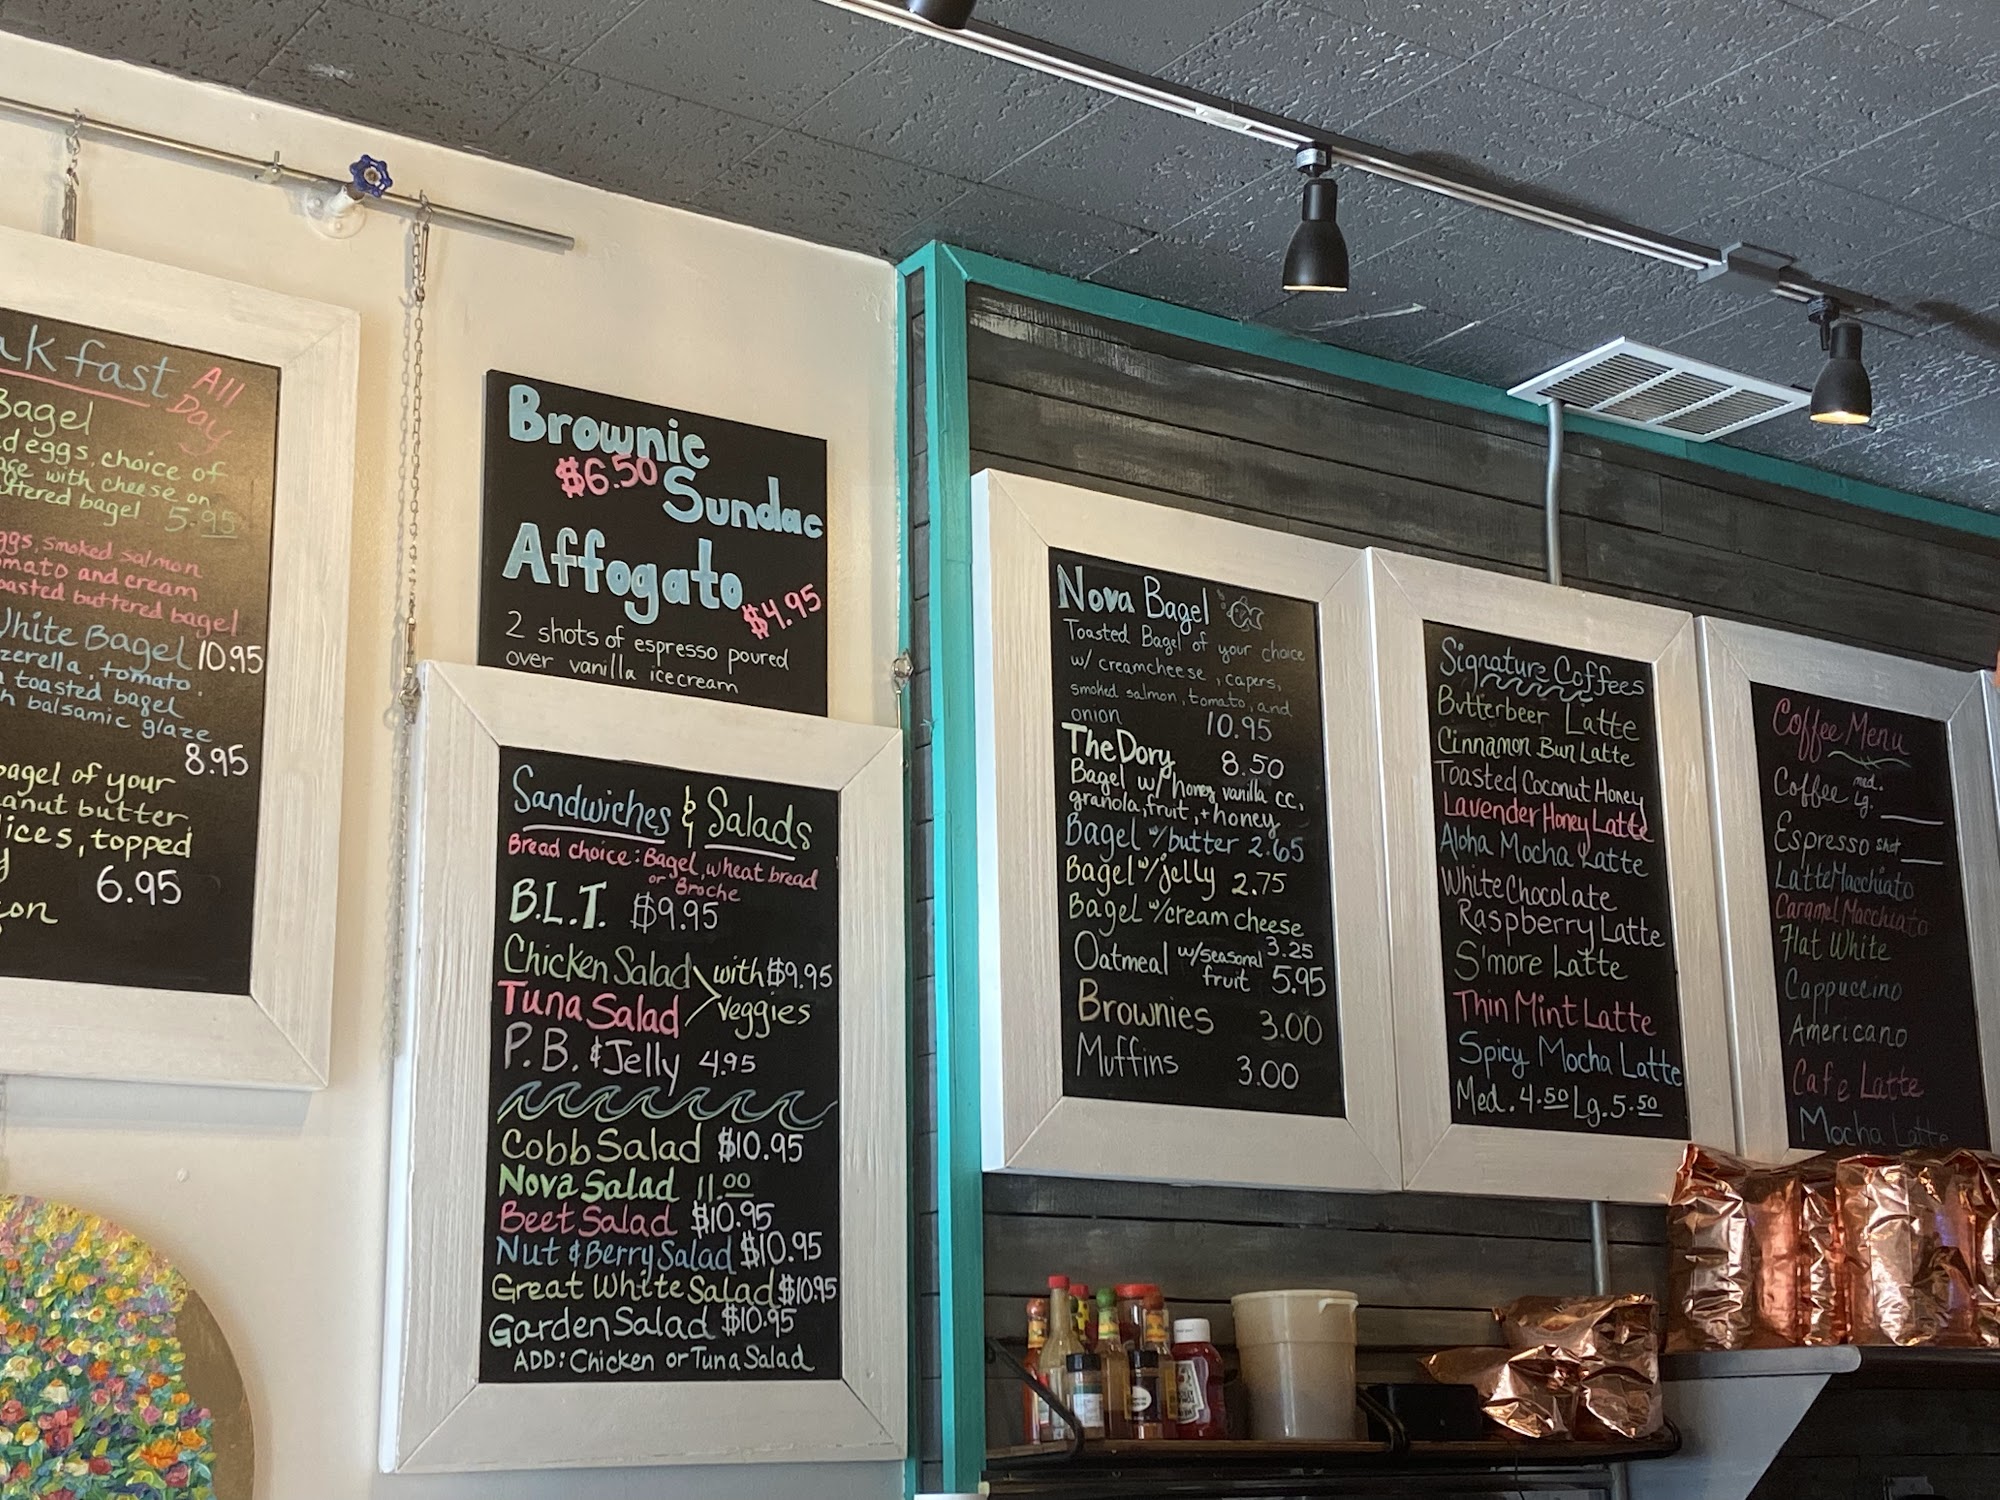 akfast All
Day
Bagel
ed eggs, choice of
with cheese on
buttered bagel 5.95
eggs, smoked salmon
tomato and cream
toasted buttered bagel
White Bagel 10.95
zzerella, tomato,
toasted bagel
balsamic glaze
8.95
bagel of your
peanut butter
slices, topped
6.95
Brownie
$6.50 Sundae
Affogato
$4.95
2 shots of espresso poured
over vanilla icecream
Sandwiches & Salads
Bread choice: Bagel, wheat bread
or Broche
B.L.T. $9.95
Chicken Salad with $9.95
Tuna Salad veggies
P.B. & Jelly 4.95
Cobb Salad $10.95
Nova Salad 11.00
Beet Salad $10.95
Nut & Berry Salad $10.95
Great White Salad $10.95
Garden Salad $10.95
ADD: Chicken or Tuna Salad
Nova Bagel
Toasted Bagel of your choice
w/ creamcheese, capers,
smoked salmon, tomato, and
onion 10.95
The Dory 8.50
Bagel w/ honey vanilla cc,
granola, fruit, + honey
Bagel w/ butter 2.65
Bagel w/ jelly 2.75
Bagel w/ cream cheese
3.25
Oatmeal w/seasonal
fruit 5.95
Brownies 3.00
Muffins 3.00
Signature Coffees
Butterbeer Latte
Cinnamon Bun Latte
Toasted Coconut Honey
Lavender Honey Latte
Aloha Mocha Latte
White Chocolate
Raspberry Latte
S'more Latte
Thin Mint Latte
Spicy Mocha Latte
Med. 4.50 Lg. 5.50
Coffee Menu
Coffee med.
lg.
Espresso shot
Latte Macchiato
Caramel Macchiato
Flat White
Cappuccino
Americano
Cafe Latte
Mocha Latte